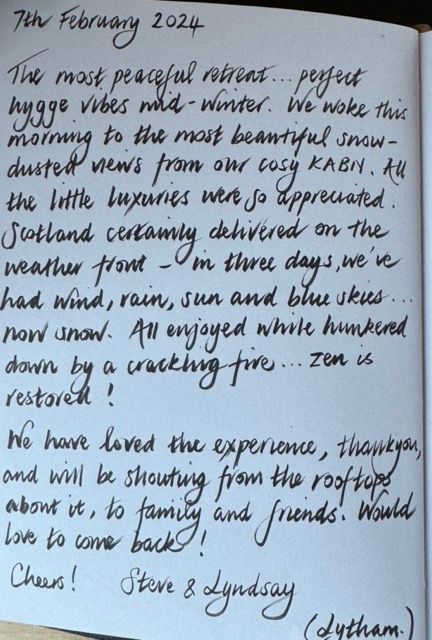 7th February 2024
The most peaceful retreat... perfect
hygge vibes mid-winter. We woke this
morning to the most beautiful snow-
dusted views from our cosy KABN. All
the little luxuries were so appreciated.
Scotland certainly delivered on the
weather front - in three days, we've
had wind, rain, sun and blue skies...
now snow. All enjoyed while hunkered
down by a crackling fire... zen is
restored!
We have loved the experience, thankyou,
and will be shouting from the rooftops
about it, to family and friends. Would
love to come back!
Cheers! Steve & Lyndsay
(Lytham.)